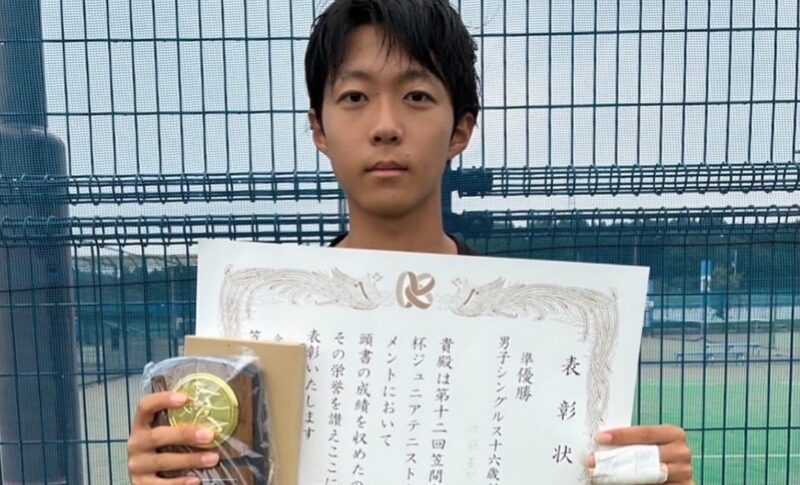 表彰状
準優勝
男子シングルス十六歳
貴殿は第十二回笠間
杯ジュニアテニスト
メントにおいて
頭書の成績を収めたの
その栄誉を讃えここに
表彰いたします
令
笠